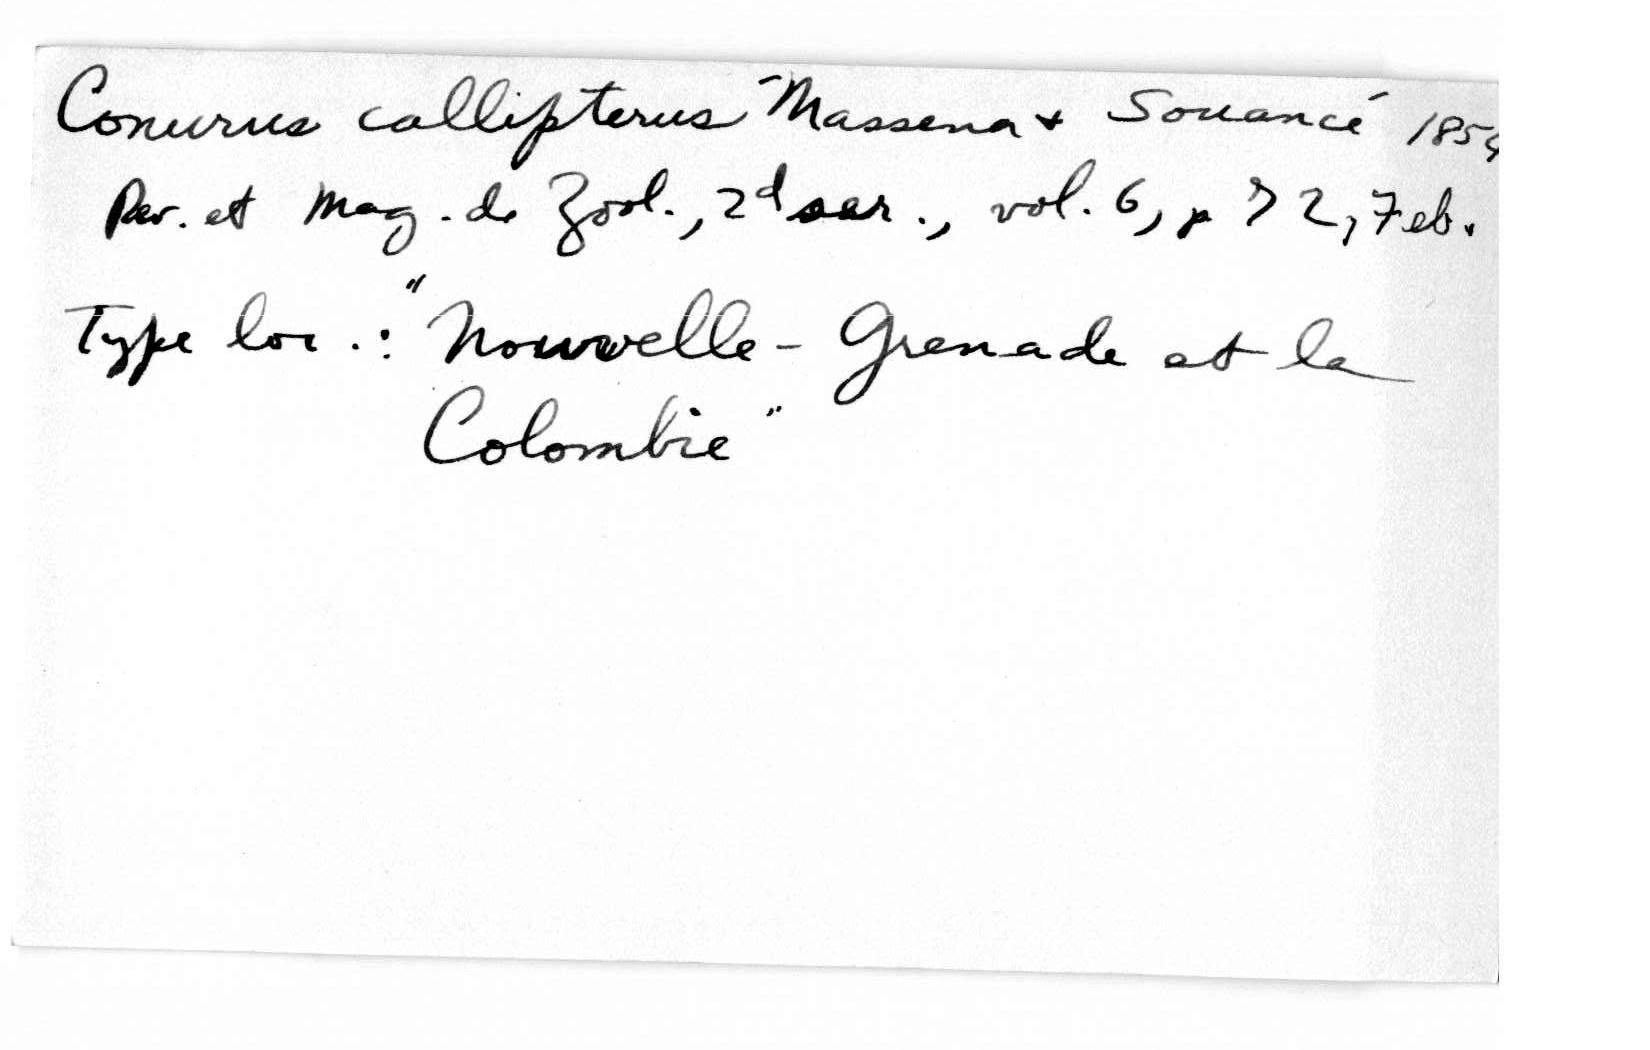 Conurus callipterus Massena + Souancé 1854
Rev. et Mag. de Zool., 2d ser., vol. 6, p 72, Feb.
Type loc.: "Nouvelle-Grenade et la
Colombie"